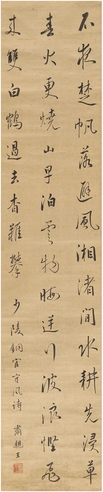 不夜楚帆落避風湘渚間水耕先浸草
春火更燒山早泊雲物晦逆行波浪慳飛
來雙白鶴過去杳難攀 少陵銅官守風詩 肅親王